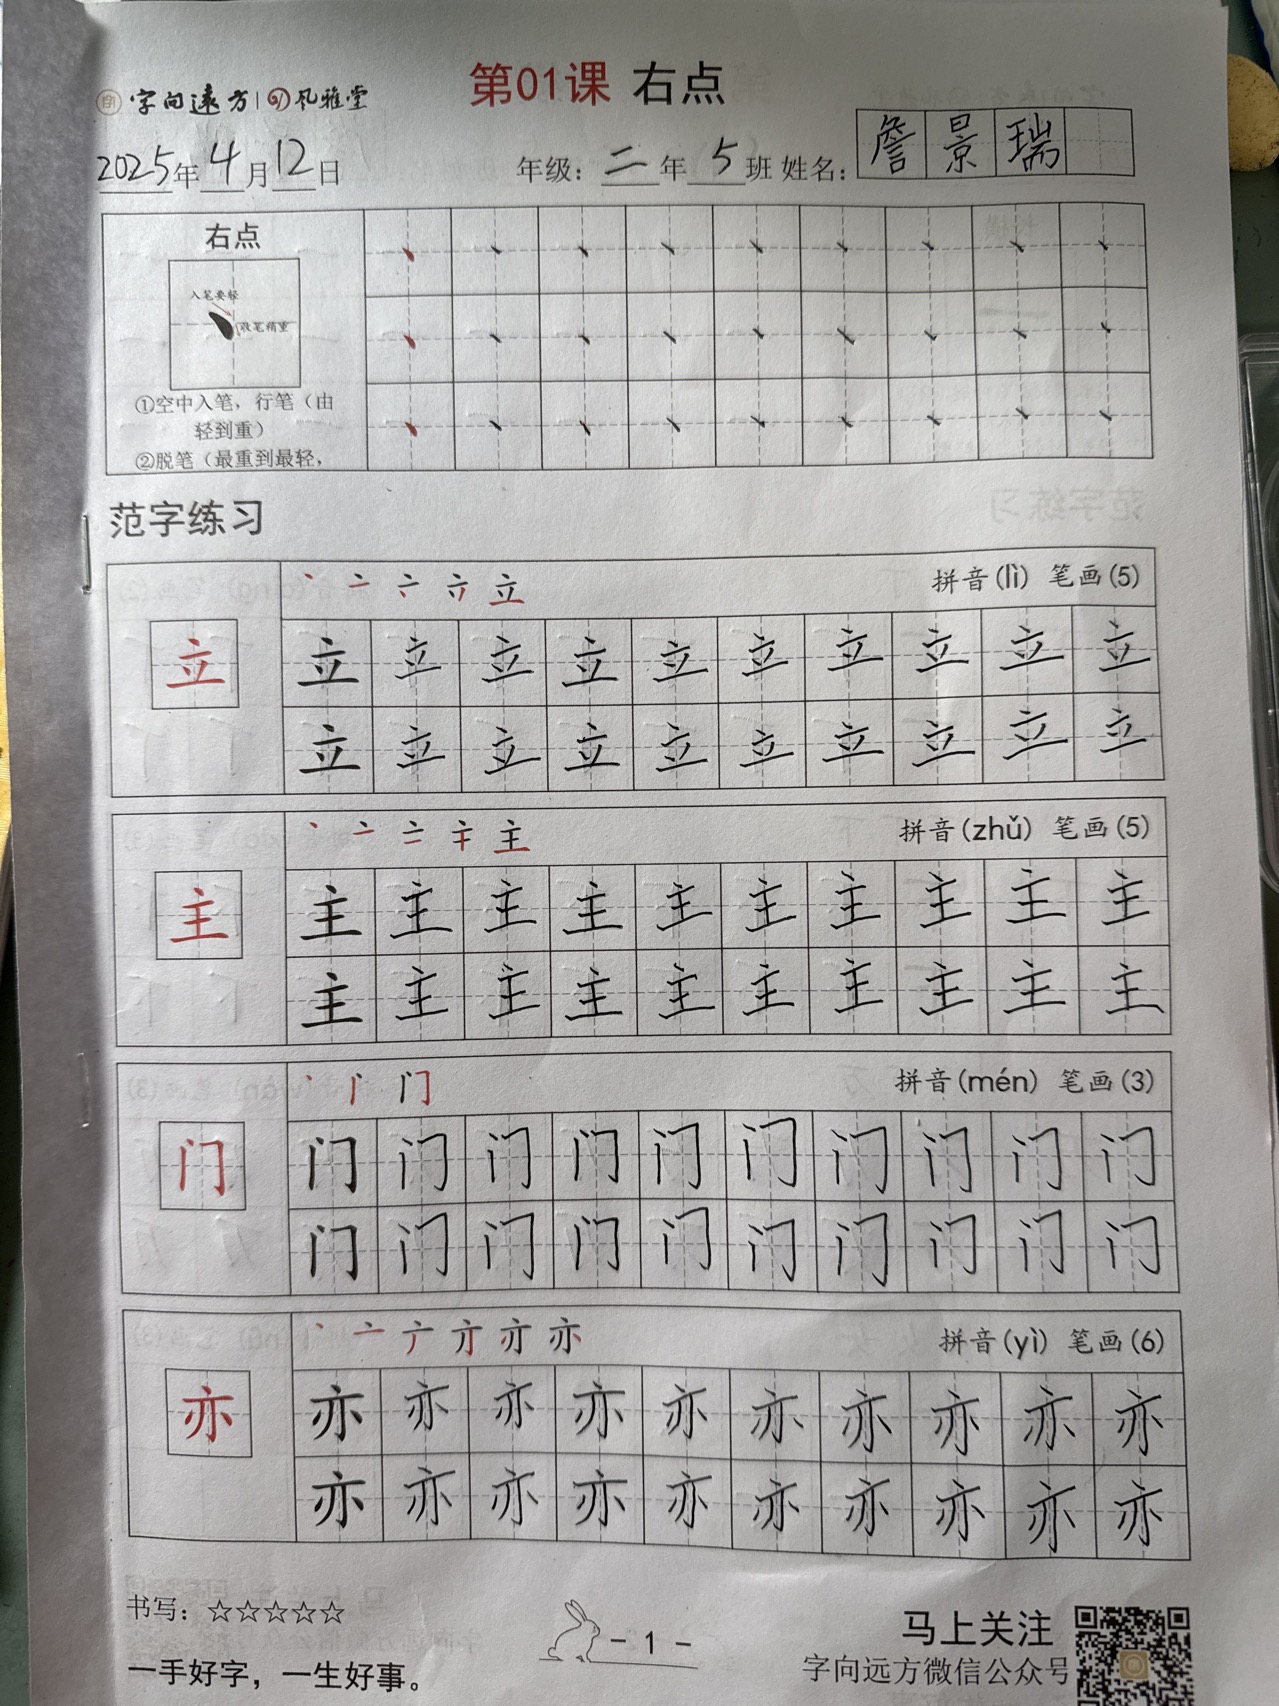 字向远方 | 风雅堂
第01课 右点
2025年4月12日 年级：二年5班 姓名：詹景瑞
右点
入笔要轻
收笔稍重
①空中入笔，行笔（由
轻到重）
②脱笔（最重到最轻，
范字练习
丶 亠 立 拼音(lì) 笔画(5)
立 立 立 立 立 立 立 立 立 立 立
立 立 立 立 立 立 立 立 立 立
丶 亠 主 拼音(zhǔ) 笔画(5)
主 主 主 主 主 主 主 主 主 主 主
主 主 主 主 主 主 主 主 主 主
丶 门 拼音(mén) 笔画(3)
门 门 门 门 门 门 门 门 门 门 门
门 门 门 门 门 门 门 门 门 门
丶 亠 亦 拼音(yì) 笔画(6)
亦 亦 亦 亦 亦 亦 亦 亦 亦 亦 亦
亦 亦 亦 亦 亦 亦 亦 亦 亦 亦
书写：☆☆☆☆☆
一手好字，一生好事。
- 1 -
马上关注
字向远方微信公众号